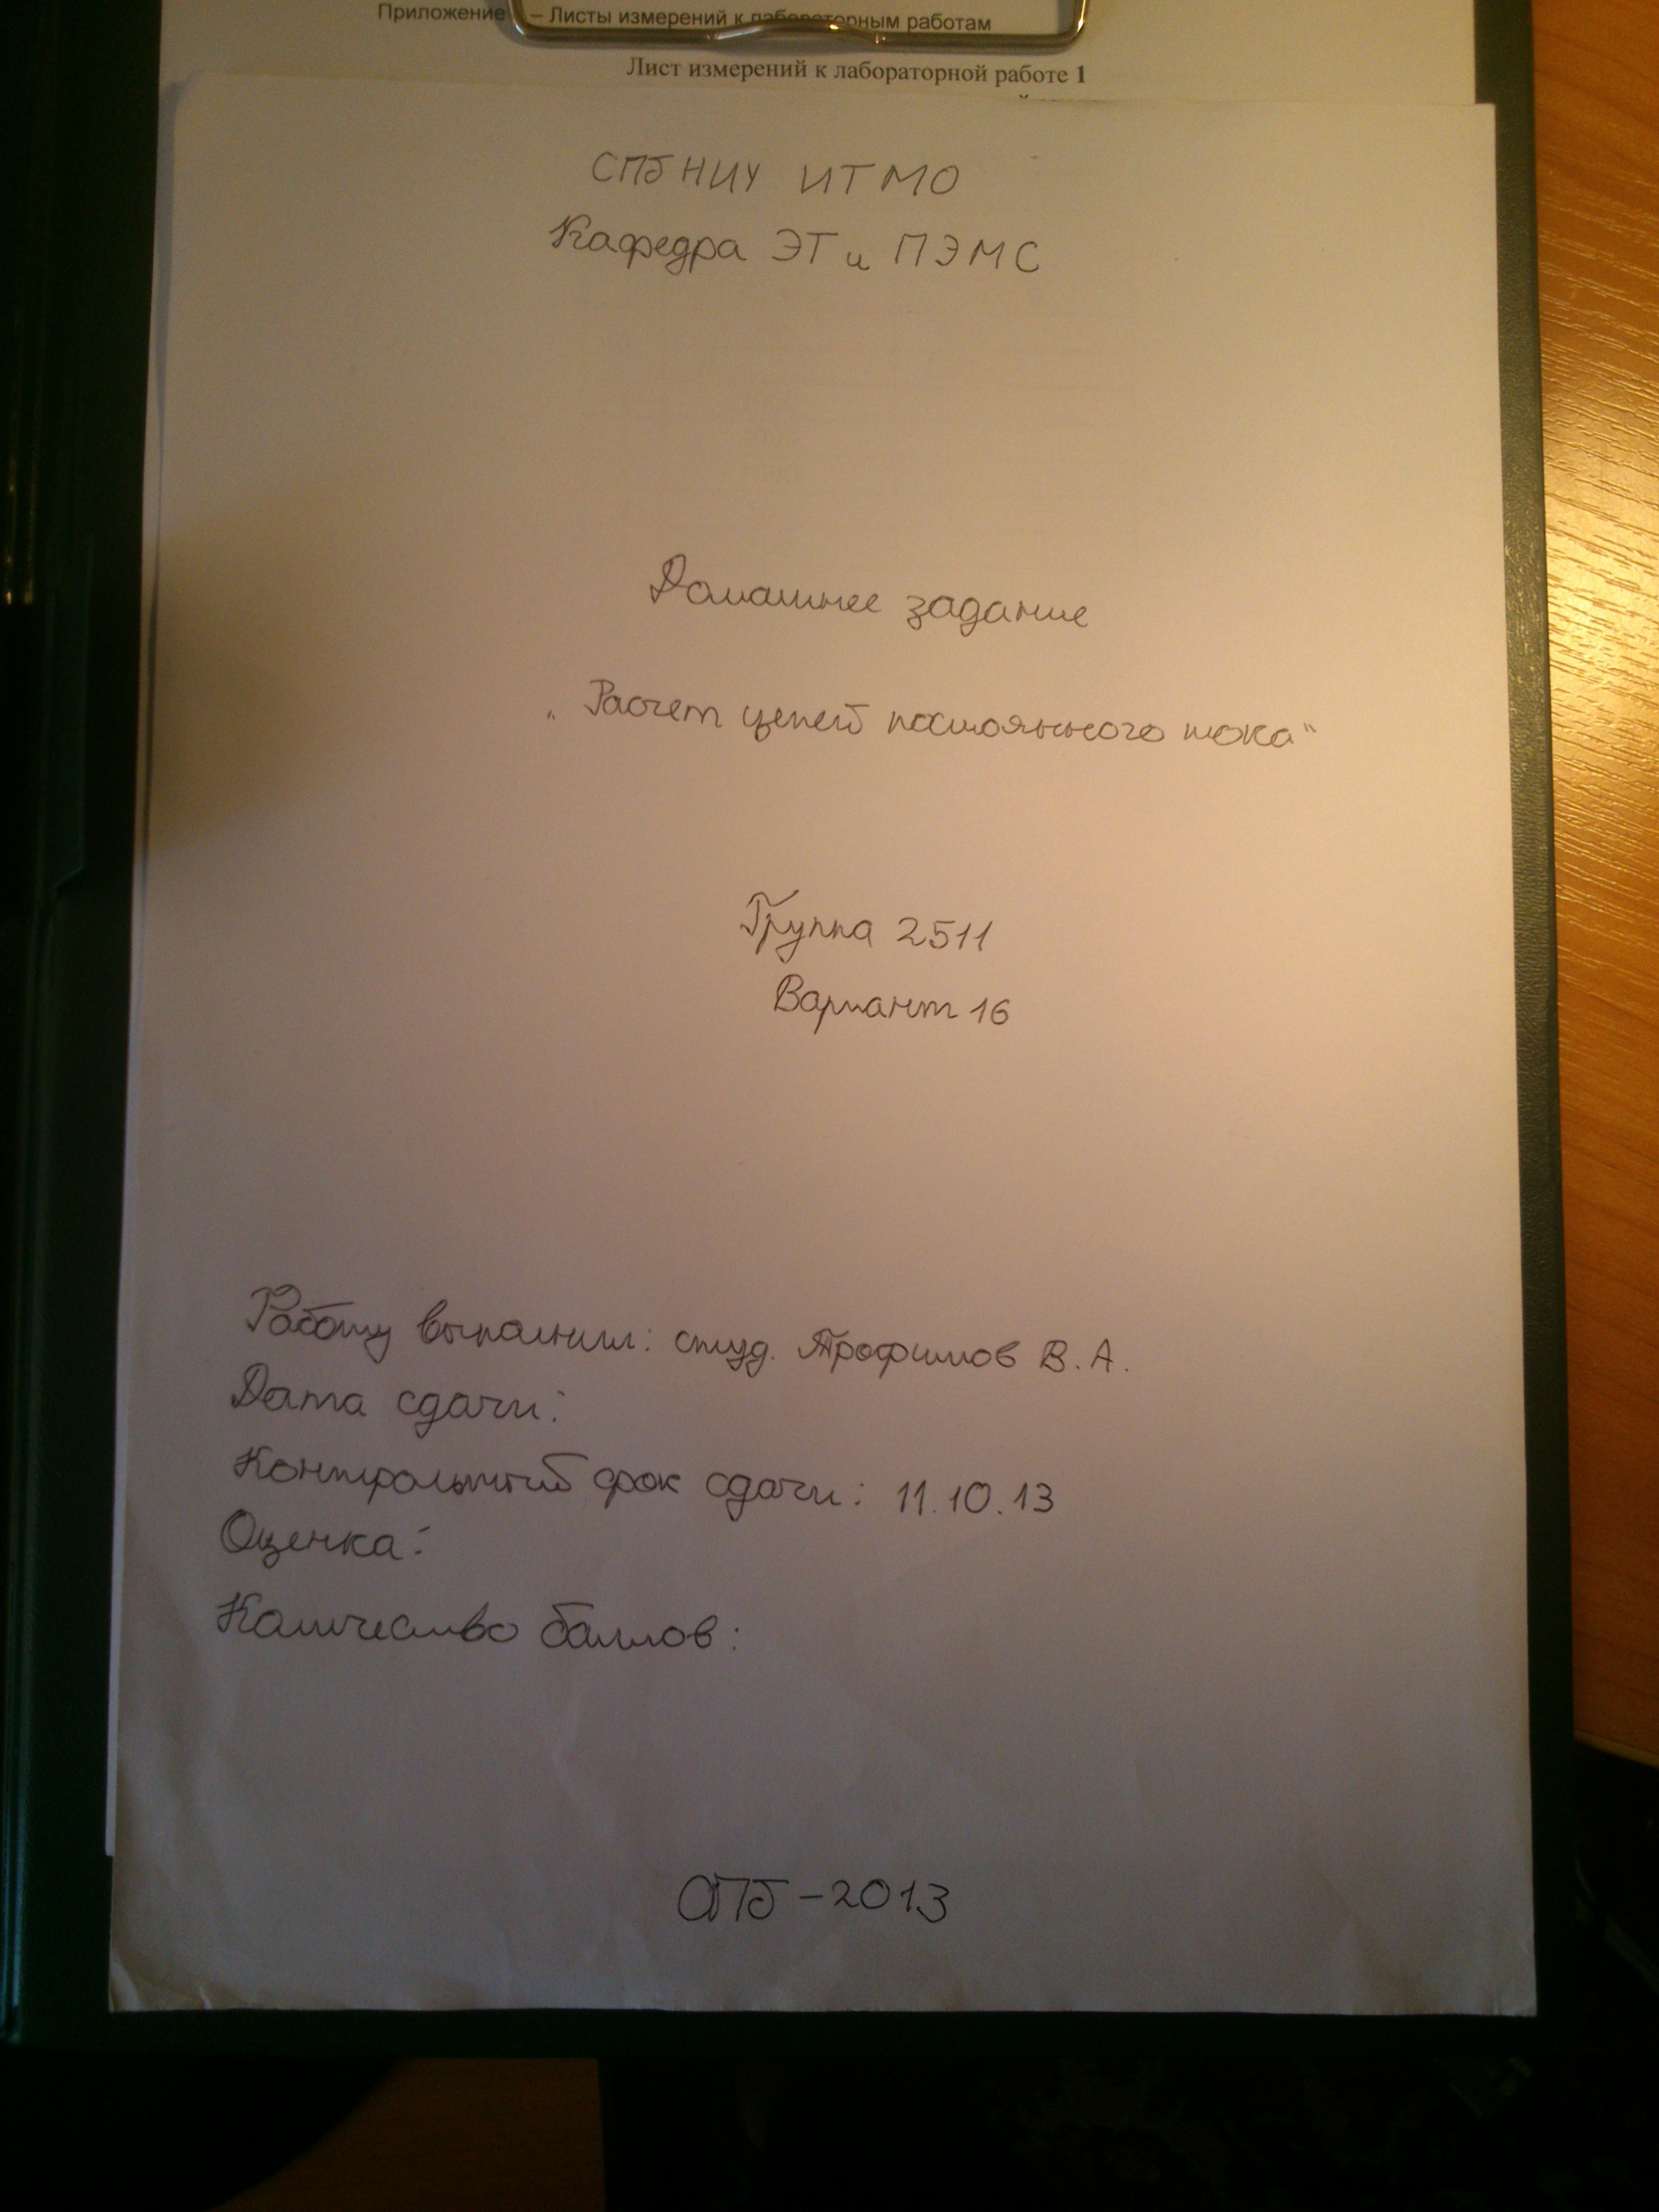 Приложение – Листы измерений к лабораторным работам
Лист измерений к лабораторной работе 1
СПбНИУ ИТМО
Кафедра ЭТ и ПЭМС
Домашнее задание
„Расчет цепей постоянного тока"
Группа 2511
Вариант 16
Работу выполнил: студ. Трофимов В.А.
Дата сдачи:
Контрольный срок сдачи: 11.10.13
Оценка:
Количество баллов:
СПб-2013